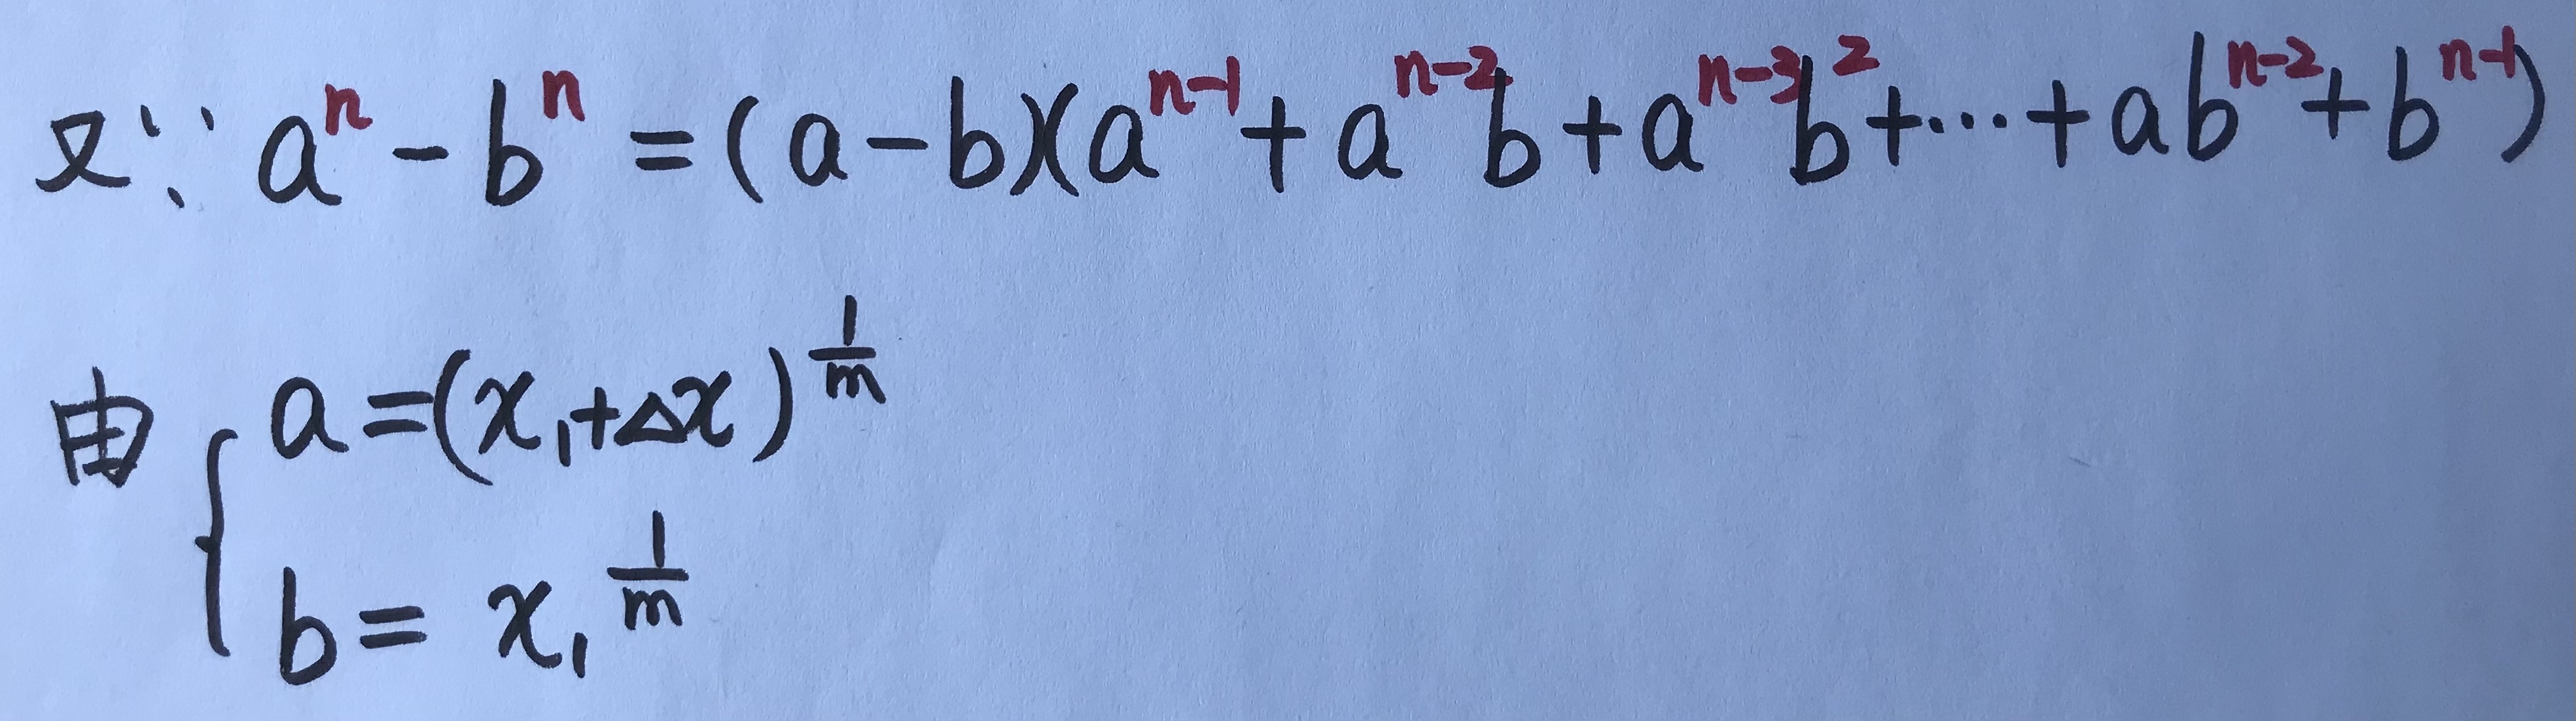 又∵ aⁿ - bⁿ = (a-b)(aⁿ⁻¹ + aⁿ⁻²b + aⁿ⁻³b² + ⋯ + abⁿ⁻² + bⁿ⁻¹)
由 { a = (x₁+△x)^(1/m)
b = x₁^(1/m)